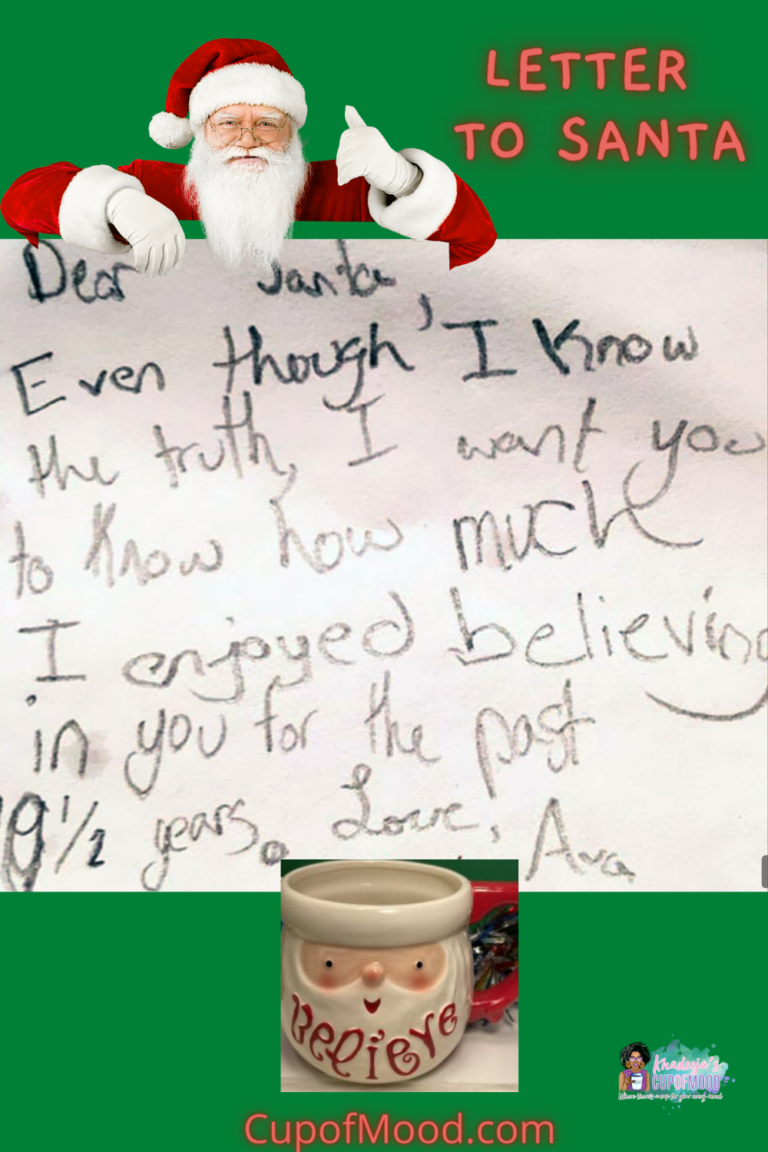 LETTER
TO SANTA
Dear Santa,
Even though I know
the truth, I want you
to know how much
I enjoyed believing
in you for the past
9 1/2 years. Love, Ava
Believe
Khadujie's
CUPOFMOOD
CupofMood.com